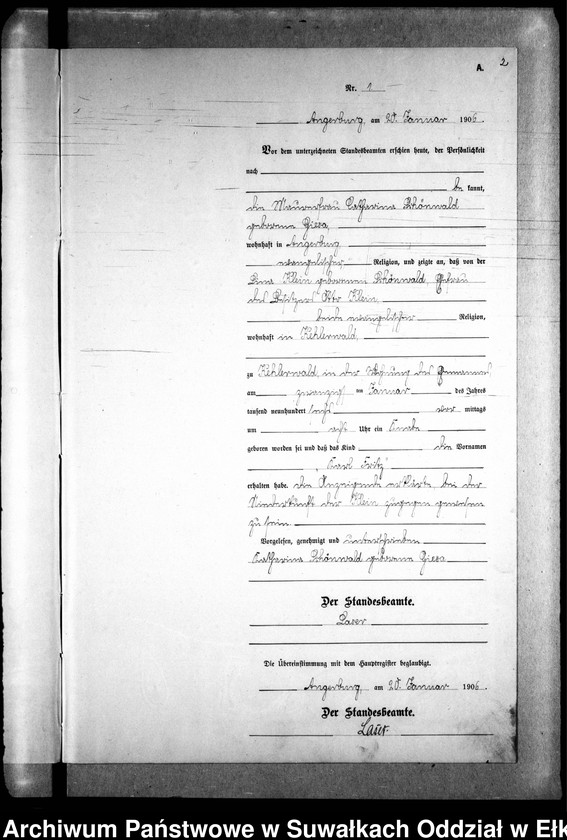 2
A.
Nr. 1
Angerburg, am 20. Januar 1906.
Vor dem unterzeichneten Standesbeamten erschien heute, der Persönlichkeit
nach
be kannt,
die Maurerfrau Catharina Schönwald
geborene Giesa,
wohnhaft in Angerburg
evangelischer Religion, und zeigte an, daß von der
Klein geborenen Schönwald, Ehefrau
des Besitzers Otto Klein,
beide evangelischer Religion,
wohnhaft in Kehlerwald,
zu Kehlerwald, in der Wohnung des Ehemannes
am zwanzigsten Januar des Jahres
tausend neunhundert sechs vor mittags
um acht Uhr ein Knabe
geboren worden sei und daß das Kind die Vornamen
„Karl Fritz"
erhalten habe. Die Anzeigende erklärte, bei der
Niederkunft der Klein zugegen gewesen
zu sein.
Vorgelesen, genehmigt und unterschrieben
Catharina Schönwald geborene Giesa
Der Standesbeamte.
Laser
Die Übereinstimmung mit dem Hauptregister beglaubigt.
Angerburg, am 20. Januar 1906.
Der Standesbeamte.
Laser.
Archiwum Państwowe w Suwałkach Oddział w Ełk